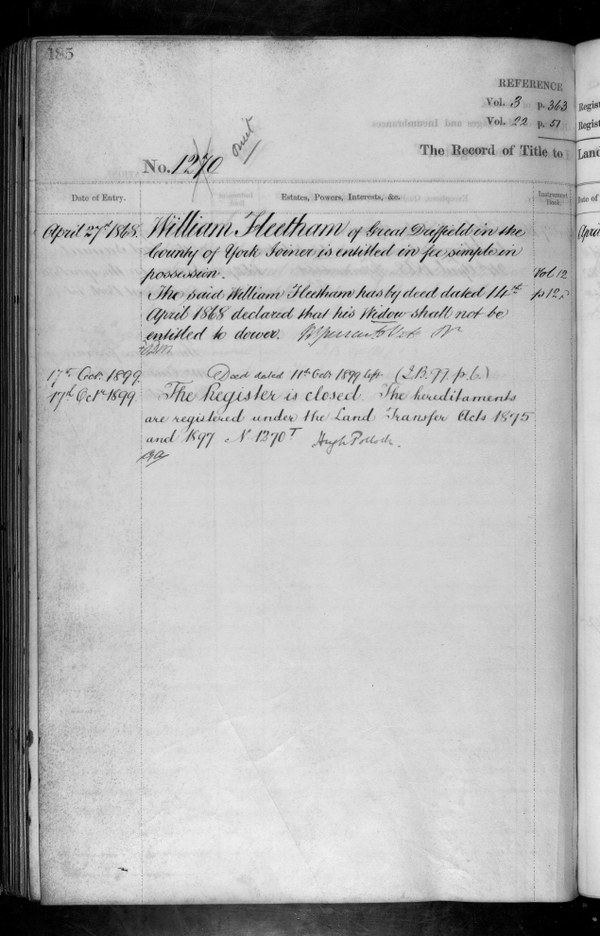 185
REFERENCE
Vol. 3 p. 363
Vol. 22 p. 51
The Record of Title to
No. 1270
Date of Entry.
Estates, Powers, Interests, &c.
Instrument Book.
April 27th 1868.
William Fleetham of Great Driffield in the
County of York Joiner is entitled in fee simple in
possession.
Vol 12
The said William Fleetham has by deed dated 14th
p 125
April 1868 declared that his Widow shall not be
entitled to dower.
17th Octr. 1899.
Deed dated 11th Octr 1899 left (I.B. 99 p. 6)
17th Octr 1899
The Register is closed The hereditaments
are registered under the Land Transfer Acts 1875
and 1897 No 1270T Hugh Pollock.
Regist
Regist
Land
Date of
April